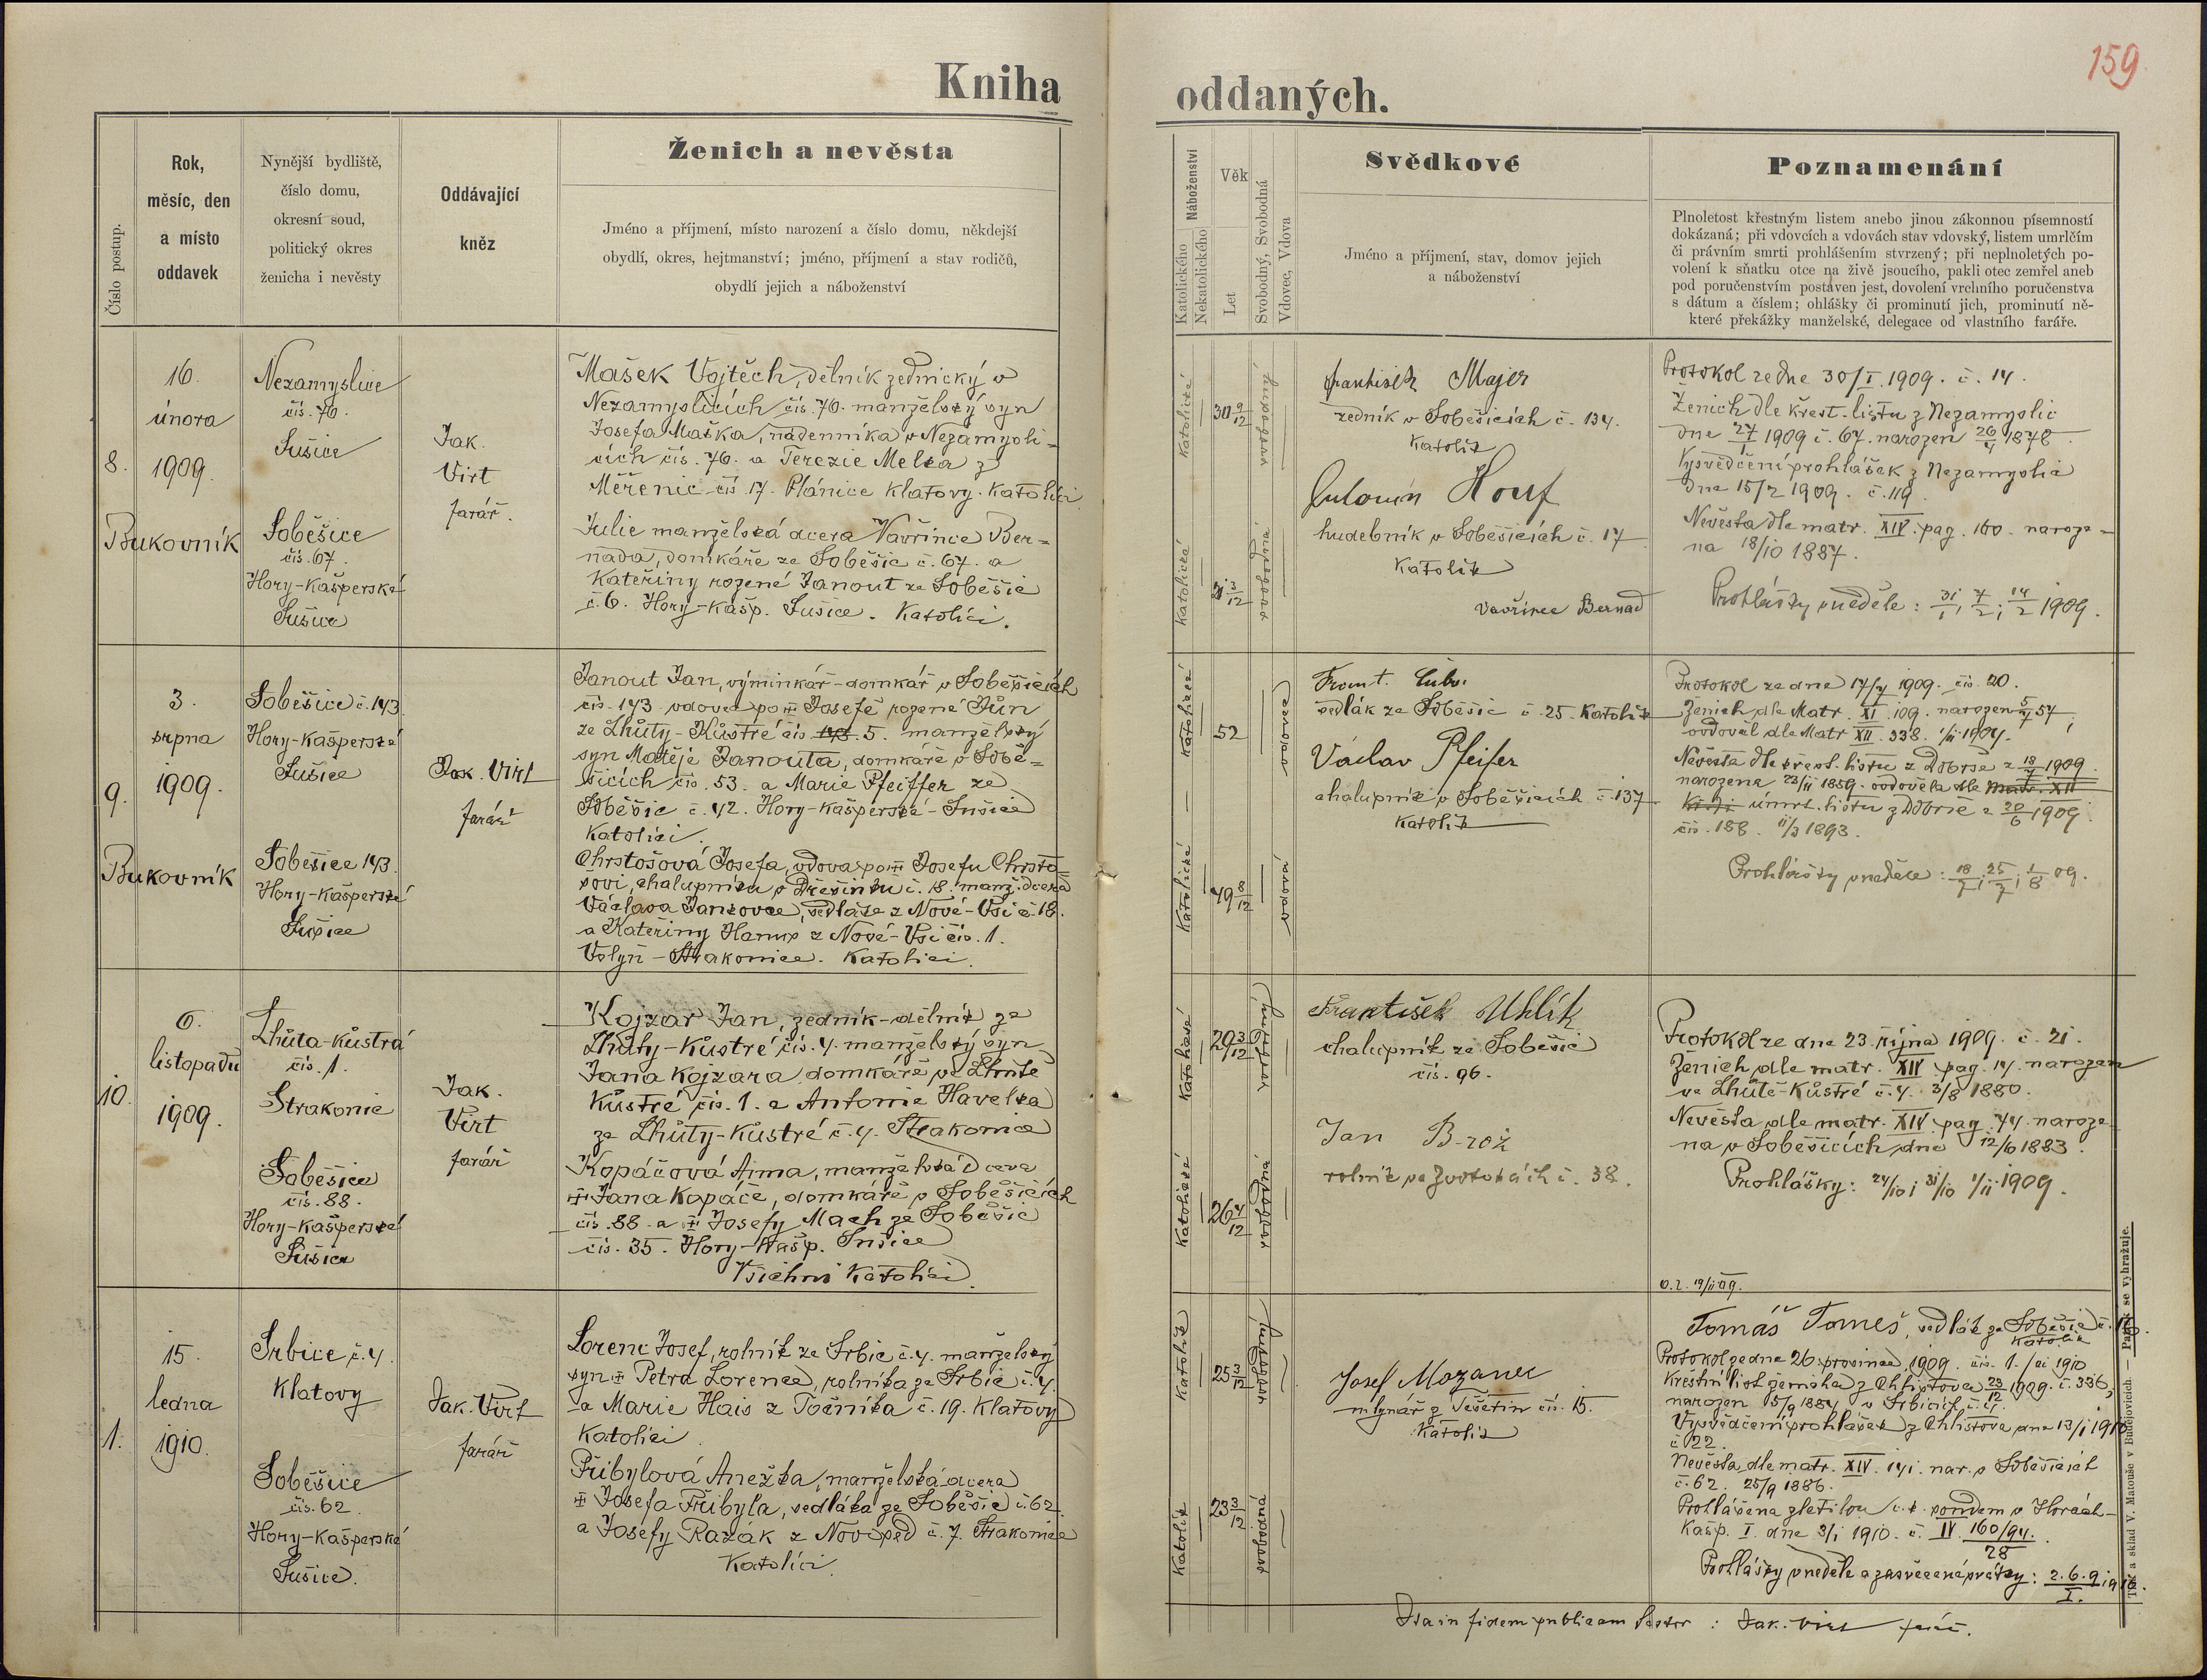 159
Kniha oddaných.
Číslo postup.
Rok,
měsíc, den
a místo
oddavek
Nynější bydliště,
číslo domu,
okresní soud,
politický okres
ženicha i nevěsty
Oddávající
kněz
Ženich a nevěsta
Jméno a příjmení, místo narození a číslo domu, někdejší
obydlí, okres, hejtmanství; jméno, příjmení a stav rodičů,
obydlí jejich a náboženství
Katolického
Nekatolického
Náboženství
Věk
Let
Svobodný, Svobodná
Vdovec, Vdova
Svědkové
Jméno a příjmení, stav, domov jejich
a náboženství
Poznamenání
Plnoletost křestným listem anebo jinou zákonnou písemností
dokázaná; při vdovcích a vdovách stav vdovský, listem umrlčím
či právním smrti prohlášením stvrzený; při neplnoletých po-
volení k sňatku otce na živě jsoucího, pakli otec zemřel aneb
pod poručenstvím postaven jest, dovolení vrchního poručenstva
s dátum a číslem; ohlášky či prominutí jich, prominutí ně-
které překážky manželské, delegace od vlastního faráře.
8.
16.
února
1909.
Bukovník
Nezamyslice
čis. 76.
Sušice
Soběšice
čis. 67.
Hory-Kašperské
Sušice
Jak.
Virt
farář.
Mašek Vojtěch, dělník zednický v
Nezamyslicích čis. 76. manželský syn
Josefa Maška, nádenníka v Nezamysli-
cích čis. 76. a Terezie Melka z
Měřenic čis 17. Plánice Klatovy. Katolíci
Julie manželská dcera Vavřince Ber-
nada, domkáře ze Soběšic č. 67. a
Kateřiny rozené Janout ze Soběšic
č. 6. Hory-Kašp. Sušice. Katolíci.
Katolické
30 9/12
svobodný
Katolická
21 3/12
svobodná
František Majer
zedník v Soběšicích č. 134.
Katolík
Antonín Houf
hudebník v Soběšicích č. 17
Katolík
Vavřinec Bernad
Protokol ze dne 30/I. 1909. č. 14.
Ženich dle křest. listu z Nezamyslic
dne 27/1 1909 č. 67. narozen 26/4 1878.
Vysvědčení prohlášek z Nezamyslic
dne 15/2 1909. č. 119.
Nevěsta dle matr. XIV. pag. 160. naroze-
na 18/10 1887.
Prohlášky v neděle: 31/1; 7/2; 14/2 1909.
9.
3.
srpna
1909.
Bukovník
Soběšice č. 143
Hory-Kašperské
Sušice
Soběšice 143.
Hory-Kašperské
Sušice
Jak. Virt
farář
Janout Jan, výminkář-domkář v Soběšicích
čis. 143 vdovec po † Josefě rozené Jůn
ze Lhůty-Kůstré čis. 143. 5. manželský
syn Matěje Janouta, domkáře v Sobě-
šicích čis. 53. a Marie Pfeiffer ze
Soběšic č. 42. Hory-Kašperské-Sušice
Katolíci.
Chrstošová Josefa, vdova po † Josefu Chrsto-
šovi, chalupníku v Dřešínku č. 18. manž. dcera
Václava Jankovce, sedláka z Nové-Vsi č. 18.
a Kateřiny Harup z Nové-Vsi čis. 1.
Volyň-Strakonice. Katolíci.
Katolické
52
vdovec
Katolické
49 8/12
vdova
Frant. Cuber
sedlák ze Soběšic č. 25. Katolík
Václav Pfeifer
chalupník v Soběšicích č. 137
Katolík
Protokol ze dne 17/7 1909. čis. 20.
Ženich dle Matr. XI. 109. narozen 5/7 57;
ovdověl dle Matr. XII. 338. 1/11 1904.
Nevěsta dle křest. listu z Dobrše z 18/7 1909.
narozena 23/11 1859. ovdověla dle Matr. XII
úmrt. listu z Dobrše z 20/6 1909.
čis. 188. 11/3 1893.
Prohlášky v neděle: 18/7; 25/7; 1/8 09.
10.
6.
listopadu
1909.
Lhůta-Kůstrá
čis. 1.
Strakonic
Soběšice
čis. 88.
Hory-Kašperské
Sušice
Jak.
Virt
farář
Kojzar Jan, zedník-dělník ze
Lhůty-Kůstré čis. 4. manželský syn
Jana Kojzara, domkáře ve Lhůtě
Kůstré čis. 1. a Antonie Havelka
ze Lhůty-Kůstré č. 4. Strakonice
Kopáčová Anna, manželská dcera
† Jana Kopáče, domkáře v Soběšicích
čis. 88. a † Josefy Mach ze Soběšic
čis. 35. Hory-Kašp. Sušice
Všichni Katolíci.
Katolické
29 3/12
svobodný
Katolické
26 4/12
svobodná
František Uhlík
chalupník ze Soběšic
čis. 96.
Jan Brož
rolník ve Zvotokách č. 38.
Protokol ze dne 23. října 1909. č. 21.
Ženich dle matr. XIV. pag. 14. narozen
ve Lhůtě-Kůstré č. 4. 3/8 1880.
Nevěsta dle matr. XIV. pag. 74. naroze-
na v Soběšicích dne 12/6 1883.
Prohlášky: 24/10; 31/10 1/11 1909.
O. l. 19/11 09.
1.
15.
ledna
1910.
Srbice č. 4.
Klatovy
Soběšice
čis. 62.
Hory-Kašperské
Sušice.
Jak. Virt
farář
Lorenc Josef, rolník ze Srbic č. 4. manželský
syn † Petra Lorence, rolníka ze Srbic č. 4.
a Marie Hais z Točníka č. 19. Klatovy
Katolíci.
Přibylová Anežka, manželská dcera
† Josefa Přibyla, sedláka ze Soběšic č. 62.
a Josefy Razák z Novosed č. 7. Strakonice
Katolíci.
Katolík
25 3/12
svobodný
Katolík
23 3/12
svobodná
Josef Mozanec
mlynář z Tešetin čis. 15.
Katolík
Tomáš Tomeš, sedlák ze Soběšic
Katolík
Protokol ze dne 26. prosince 1909. čis. 1./ai 1910
Křestní list ženicha z Chlistova 23/12 1909. č. 336,
narozen 15/9 1884 v Srbicích č. 4.
Vysvědčení prohlášek z Chlistova dne 13/1 1910
č. 22.
Nevěsta dle matr. XIV. 141. nar. v Soběšicích
č. 62. 25/9 1886.
Prohlášena zletilou c. k. soudem v Horách-
Kašp. I. dne 3/1 1910. č. IV. 160/94.
28
Prohlášky v neděle a zasvěcené svátky: 2. 6. 9 1910.
I.
Ita in fidem publicam testor: Jak. Virt farář.
Tisk a sklad V. Matouše v Budějovicích. — Patisk se vyhražuje.